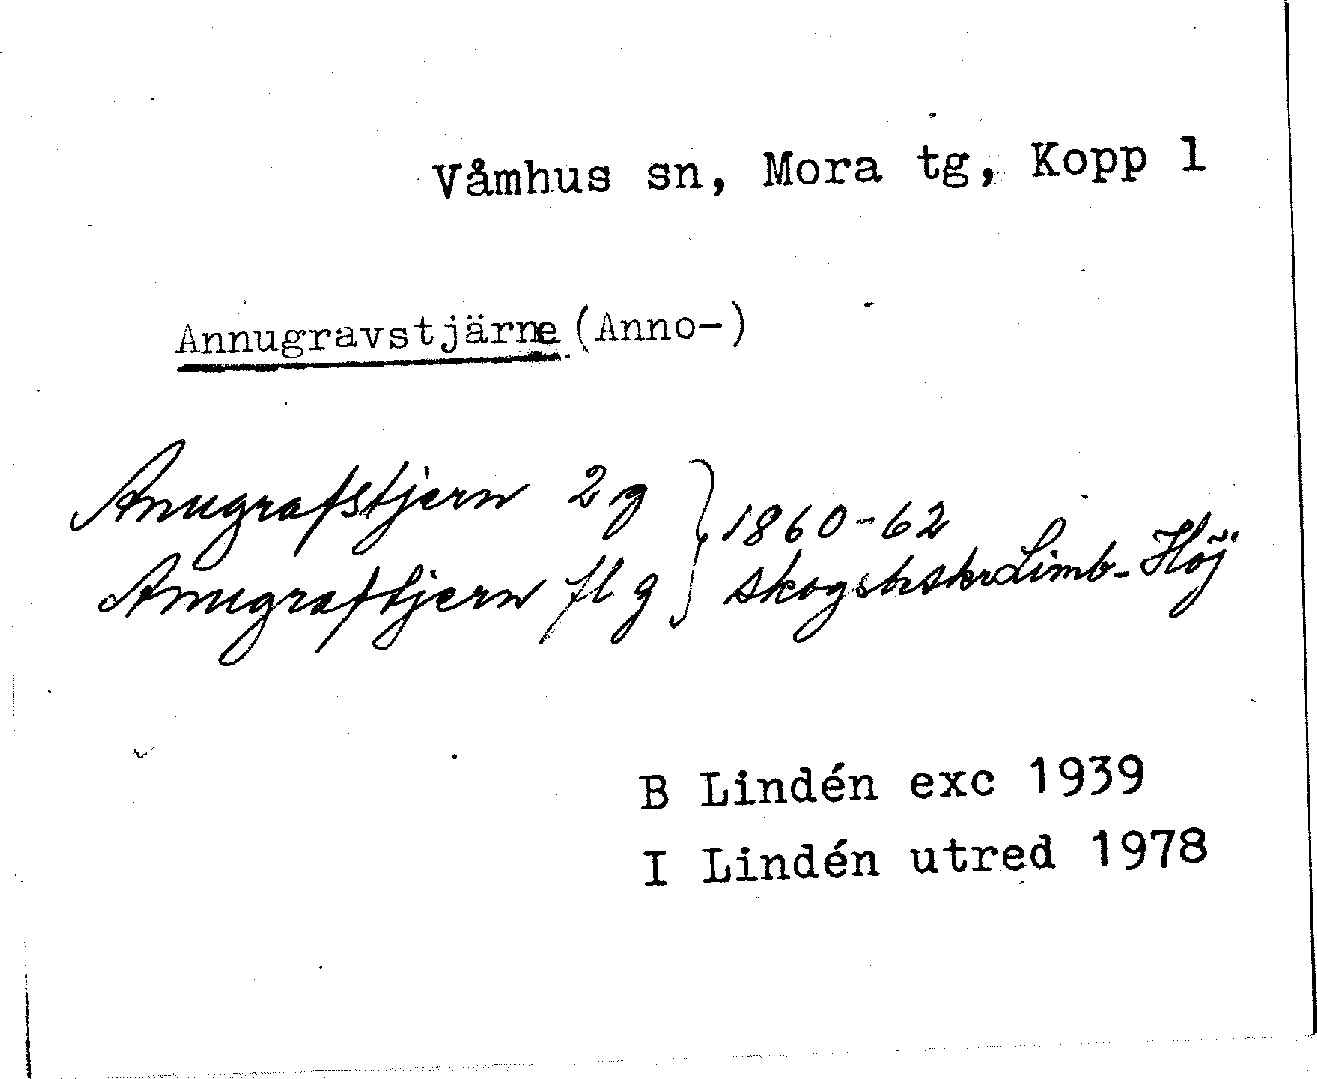 Våmhus sn, Mora tg, Kopp l
Annugravstjärne (Anno-)
Anugrafstjern 2 g } 1860-62
Anugraftjern fl g } skogsbskr Limb-Höj
B Lindén exc 1939
I Lindén utred 1978